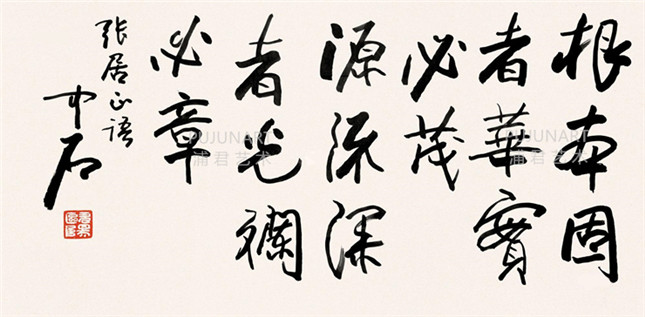 根本固
者華實
必茂
源流深
者光瀾
必章
张居正语
中石
PUJUNART
浦君艺术
PUJUNART
浦君艺术